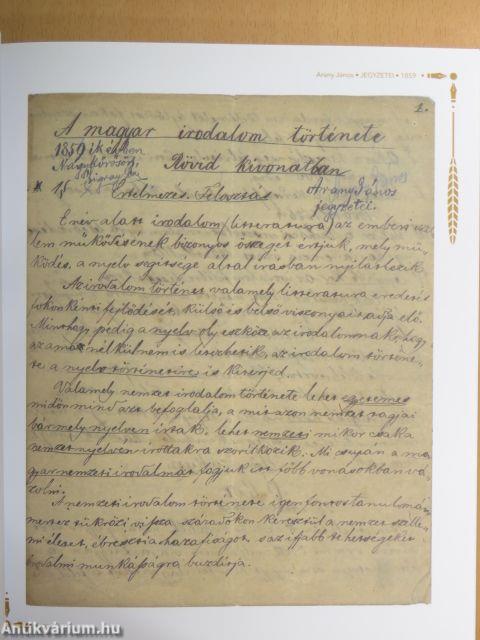 Arany János • JEGYZETEI • 1859
1.
A magyar irodalom története
1859ik évben
Nagykőrösön
Rövid kivonatban
* 1§ Értelmezés. Felosztás.
Arany János
jegyzetei.
E név alatt irodalom (litteratura) az emberi szel
lem működésének bizonyos összegét értjük, mely mű
ködés, a nyelv segítsége által írásban nyilatkozik.
Az irodalom történet valamely litteratura eredetét
fokonkénti fejlődését, külső és belső viszonyait adja elő.
Minthogy pedig a nyelv oly eszköze az irodalomnak, hogy
ez a nélkül nem is létezhetik, az irodalom történe-
te a nyelv történetére is kiterjed.
Valamely nemzet irodalom története lehet egyetemes
midőn mind azt befoglalja, a mit azon nemzet tagjai
bármely nyelven írtak, lehet nemzeti mikor csak a
nemzet nyelvén írottakra szorítkozik. Mi csupán a ma
gyar nemzeti irodalmat fogjuk itt főbb vonásokban vá-
zolni.
A nemzeti irodalom története igen fontos tanulmány
mert ez tükrözi vissza századokon keresztül a nemzet szelle-
mi életét, ébreszti a hazafiságot s az ifjabb tehetségeket
irodalmi munkásságra buzdítja.
Antikvárium.hu